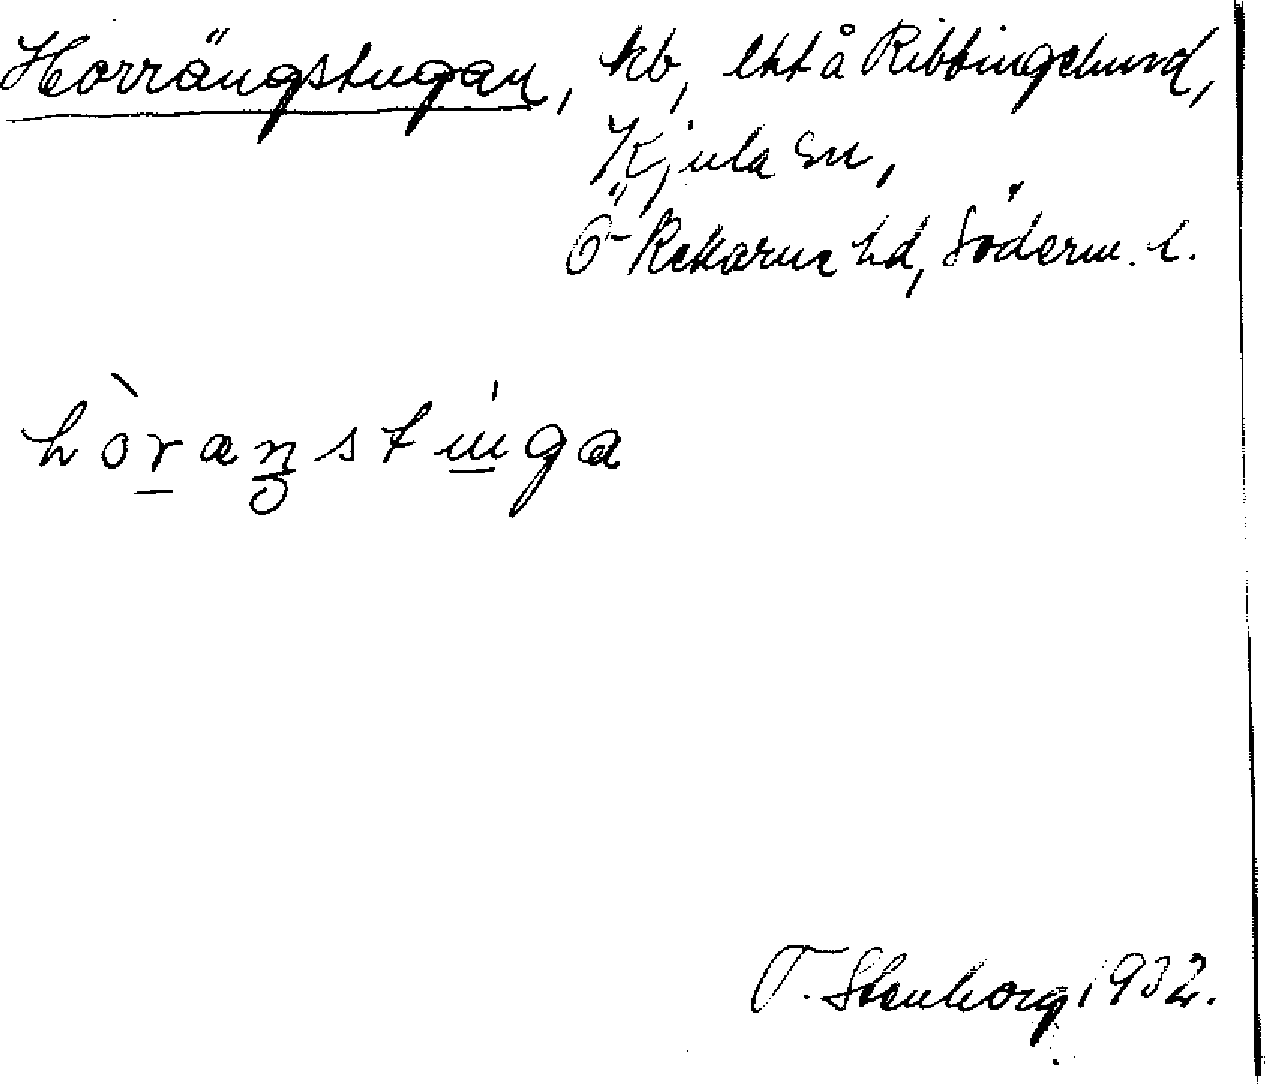 Horrängstugan, tkb, ltt å Ribbingelund,
Kjula sn,
Ö-Rekarne hd, Söderm. l.
hòranstuga
T. Stenborg 1932.